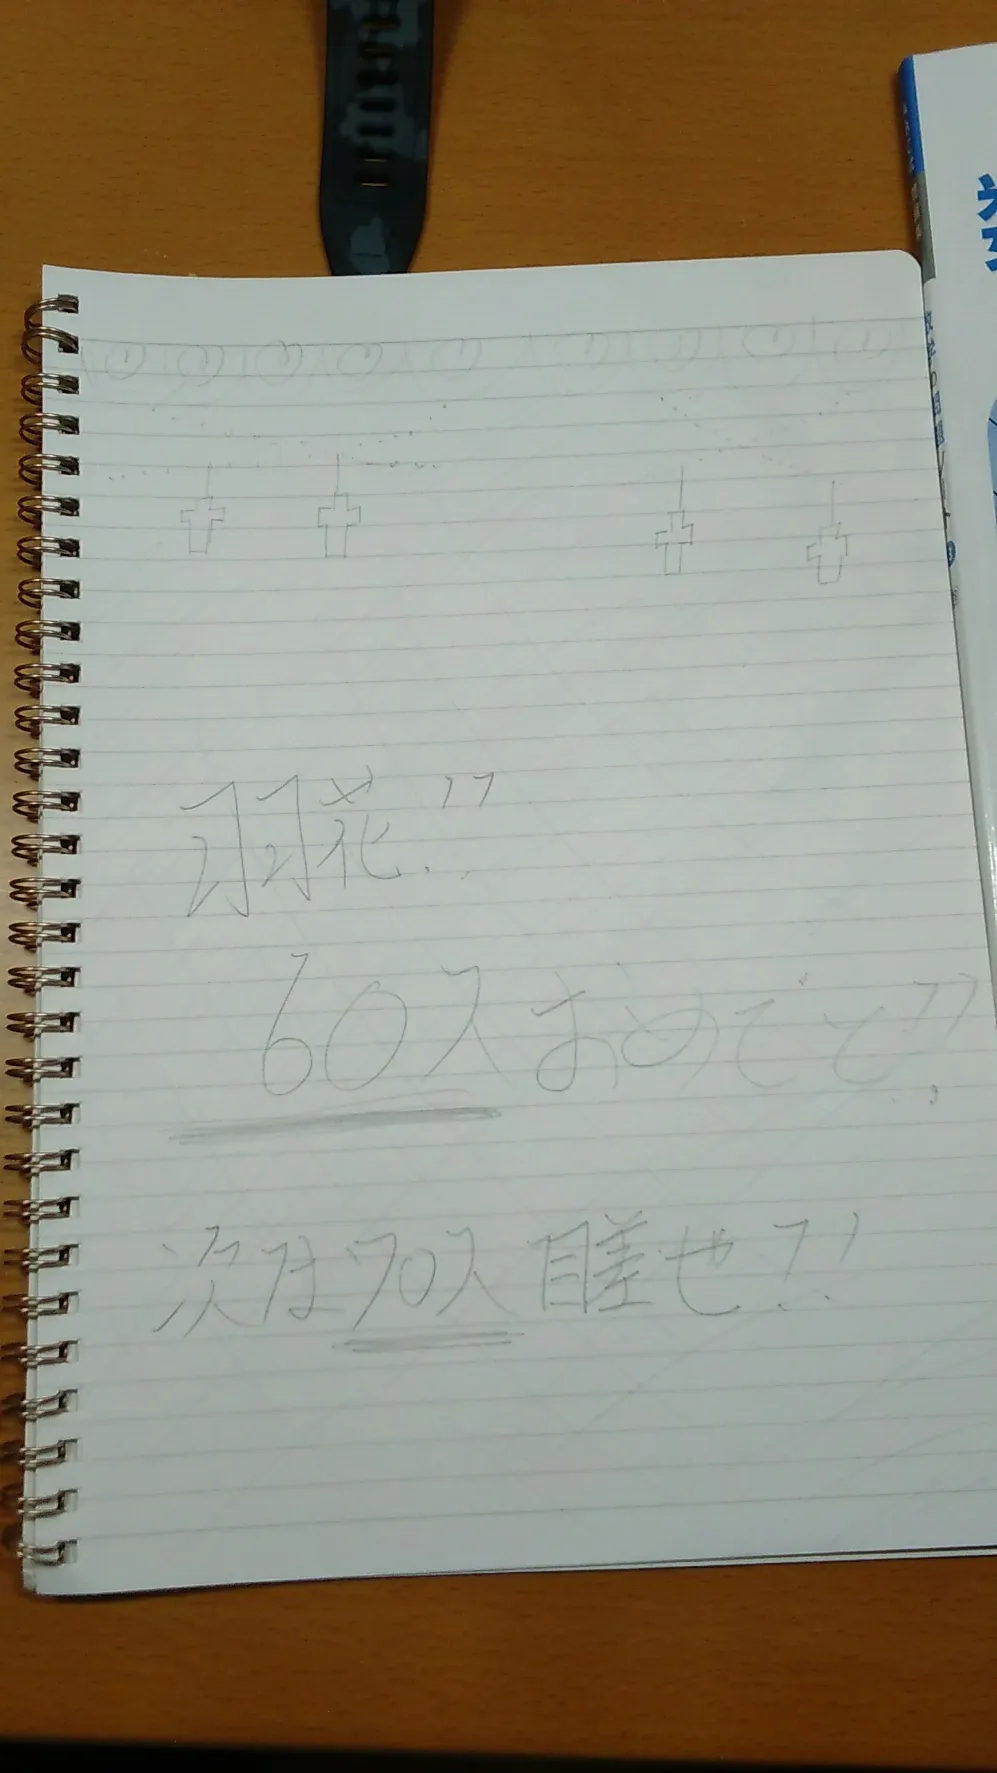 羽花!!
60人おめでと!!
次は70人目差せ!!